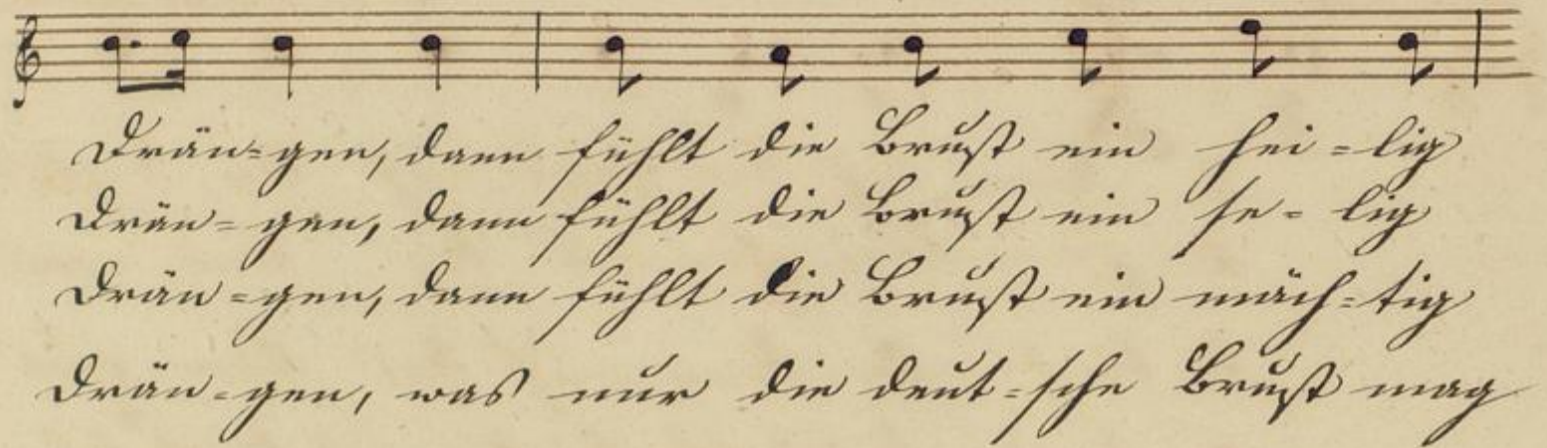 Drän=gen, dann fühlt die Brust ein hei=lig
Drän=gen, dann fühlt die Brust ein se=lig
Drän=gen, dann fühlt die Brust ein mäch=tig
Drän=gen, was nur die deut=sche Brust mag